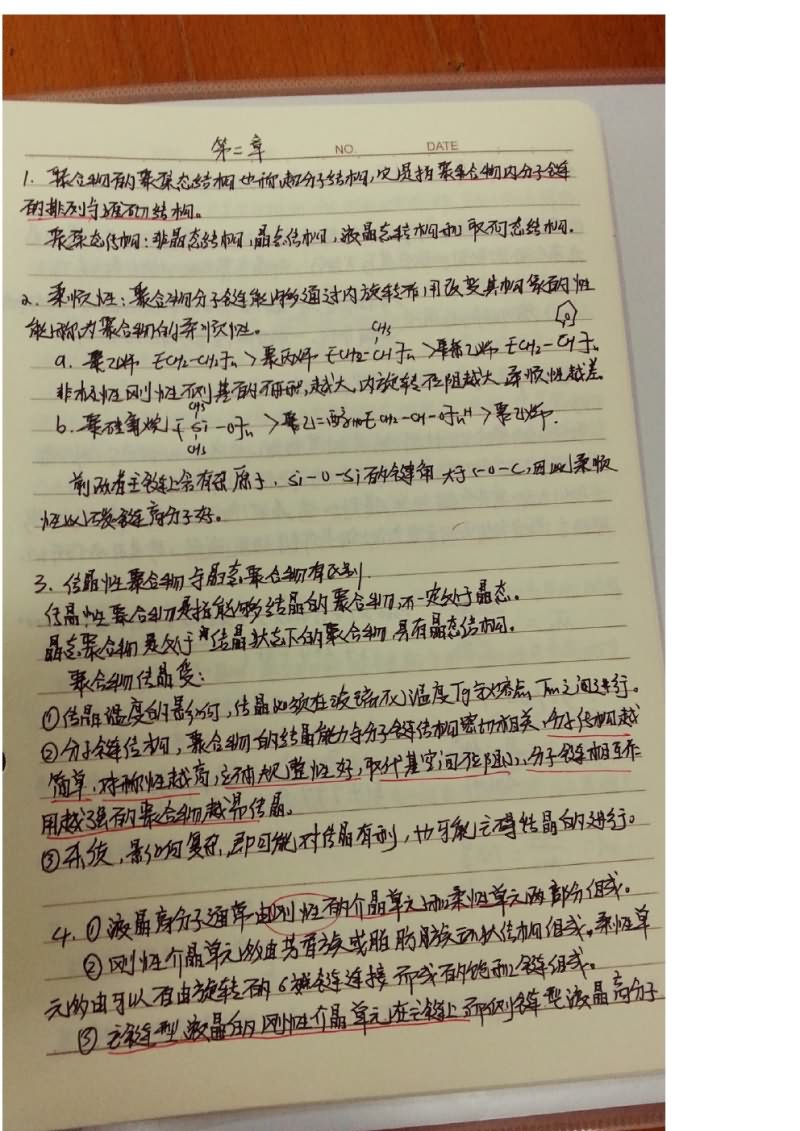 第二章 NO. DATE
1. 聚合物的聚集态结构也称超分子结构,它是指聚集合物内分子链
的排列与堆砌结构。
聚集态结构:非晶态结构,晶态结构,液晶态结构和取向态结构.
2. 柔顺性:聚合物分子链能够通过内旋转作用改变其构象的性
能称为聚合物的柔顺性。
a. 聚乙烯 [CH2-CH2]n > 聚丙烯 [CH2-CH(CH3)]n > 聚苯乙烯 [CH2-CH]n
非极性刚性侧基的体积,越大,内旋转位阻越大,柔顺性越差.
b. 聚硅氧烷 [Si(CH3)(CH3)-O]n > 聚乙二醇 H[CH2-CH-O]nH > 聚乙烯.
前两者主链上含有杂原子,Si-O-Si的键角大于C-O-C,因此柔顺
性比碳链高分子好。
3. 结晶性聚合物与晶态聚合物有区别.
结晶性聚合物是指能够结晶的聚合物,不一定处于晶态。
晶态聚合物是处于结晶状态下的聚合物,具有晶态结构。
聚合物结晶受:
①结晶温度的影响,结晶必须在玻璃化温度Tg与熔点Tm之间进行。
②分子链结构,聚合物的结晶能力与分子链结构密切相关,分子结构越
简单,对称性越高,立体规整性好,取代基空间位阻小,分子链相互作
用越强的聚合物越易结晶。
③杂质,影响复杂,即可能对结晶有利,也可能妨碍结晶的进行。
4. ①液晶高分子通常由刚性的介晶单元和柔性单元两部分组成。
②刚性介晶单元多由芳香族或脂肪族环状结构组成。柔性单
元多由可以自由旋转的σ键连接而成的饱和链组成。
③主链型液晶的刚性介晶单元在主链上,而侧链型液晶高分子